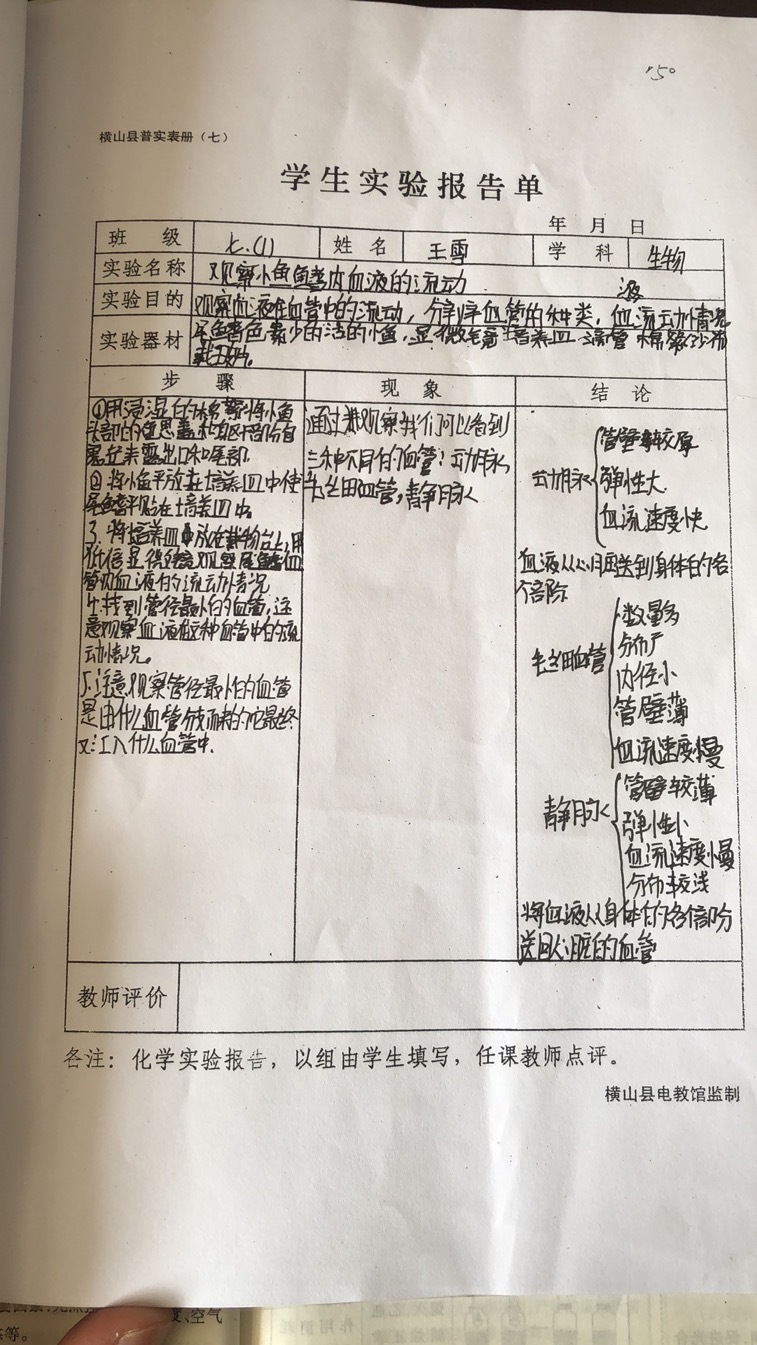 150
横山县普实表册（七）
学生实验报告单
年 月 日
班 级 七.(1) 姓 名 王雪 学 科 生物
实验名称 观察小鱼鱼鳍内血液的流动
实验目的 观察血液在血管中的流动，分辨血管的种类，血液流动情况
实验器材 尾鳍色素少的活的小鱼，显微镜 培养皿 滴管 棉絮 纱布
载玻片。
步 骤 现 象 结 论
①用浸湿的棉絮将小鱼
头部的鱼思盖和躯干部分包
裹起来露出口和尾部.
②将小鱼平放在培养皿中使
尾鳍平贴在培养皿中.
3.将培养皿放在载物台上,用
低倍显微镜观察尾鳍血
管内血液的流动情况
4.找到管径最小的血管，注
意观察血液在这种血管中的流
动情况。
5.注意观察管径最小的血管
是由什么血管分支而来的它最终
又汇入什么血管中.
通过观察我们可以看到
三种不同的血管：动脉
毛细血管，静脉
动脉
管壁较厚
弹性大
血流速度快
血液从心脏送到身体的各
个部
毛细血管
数量多
分布广
内径小
管壁薄
血流速度慢
静脉
管壁较薄
弹性小
血流速度慢
分布较浅
将血液从身体的各部分
送回心脏的血管
教师评价
各注：化学实验报告，以组由学生填写，任课教师点评。
横山县电教馆监制
空气
等。